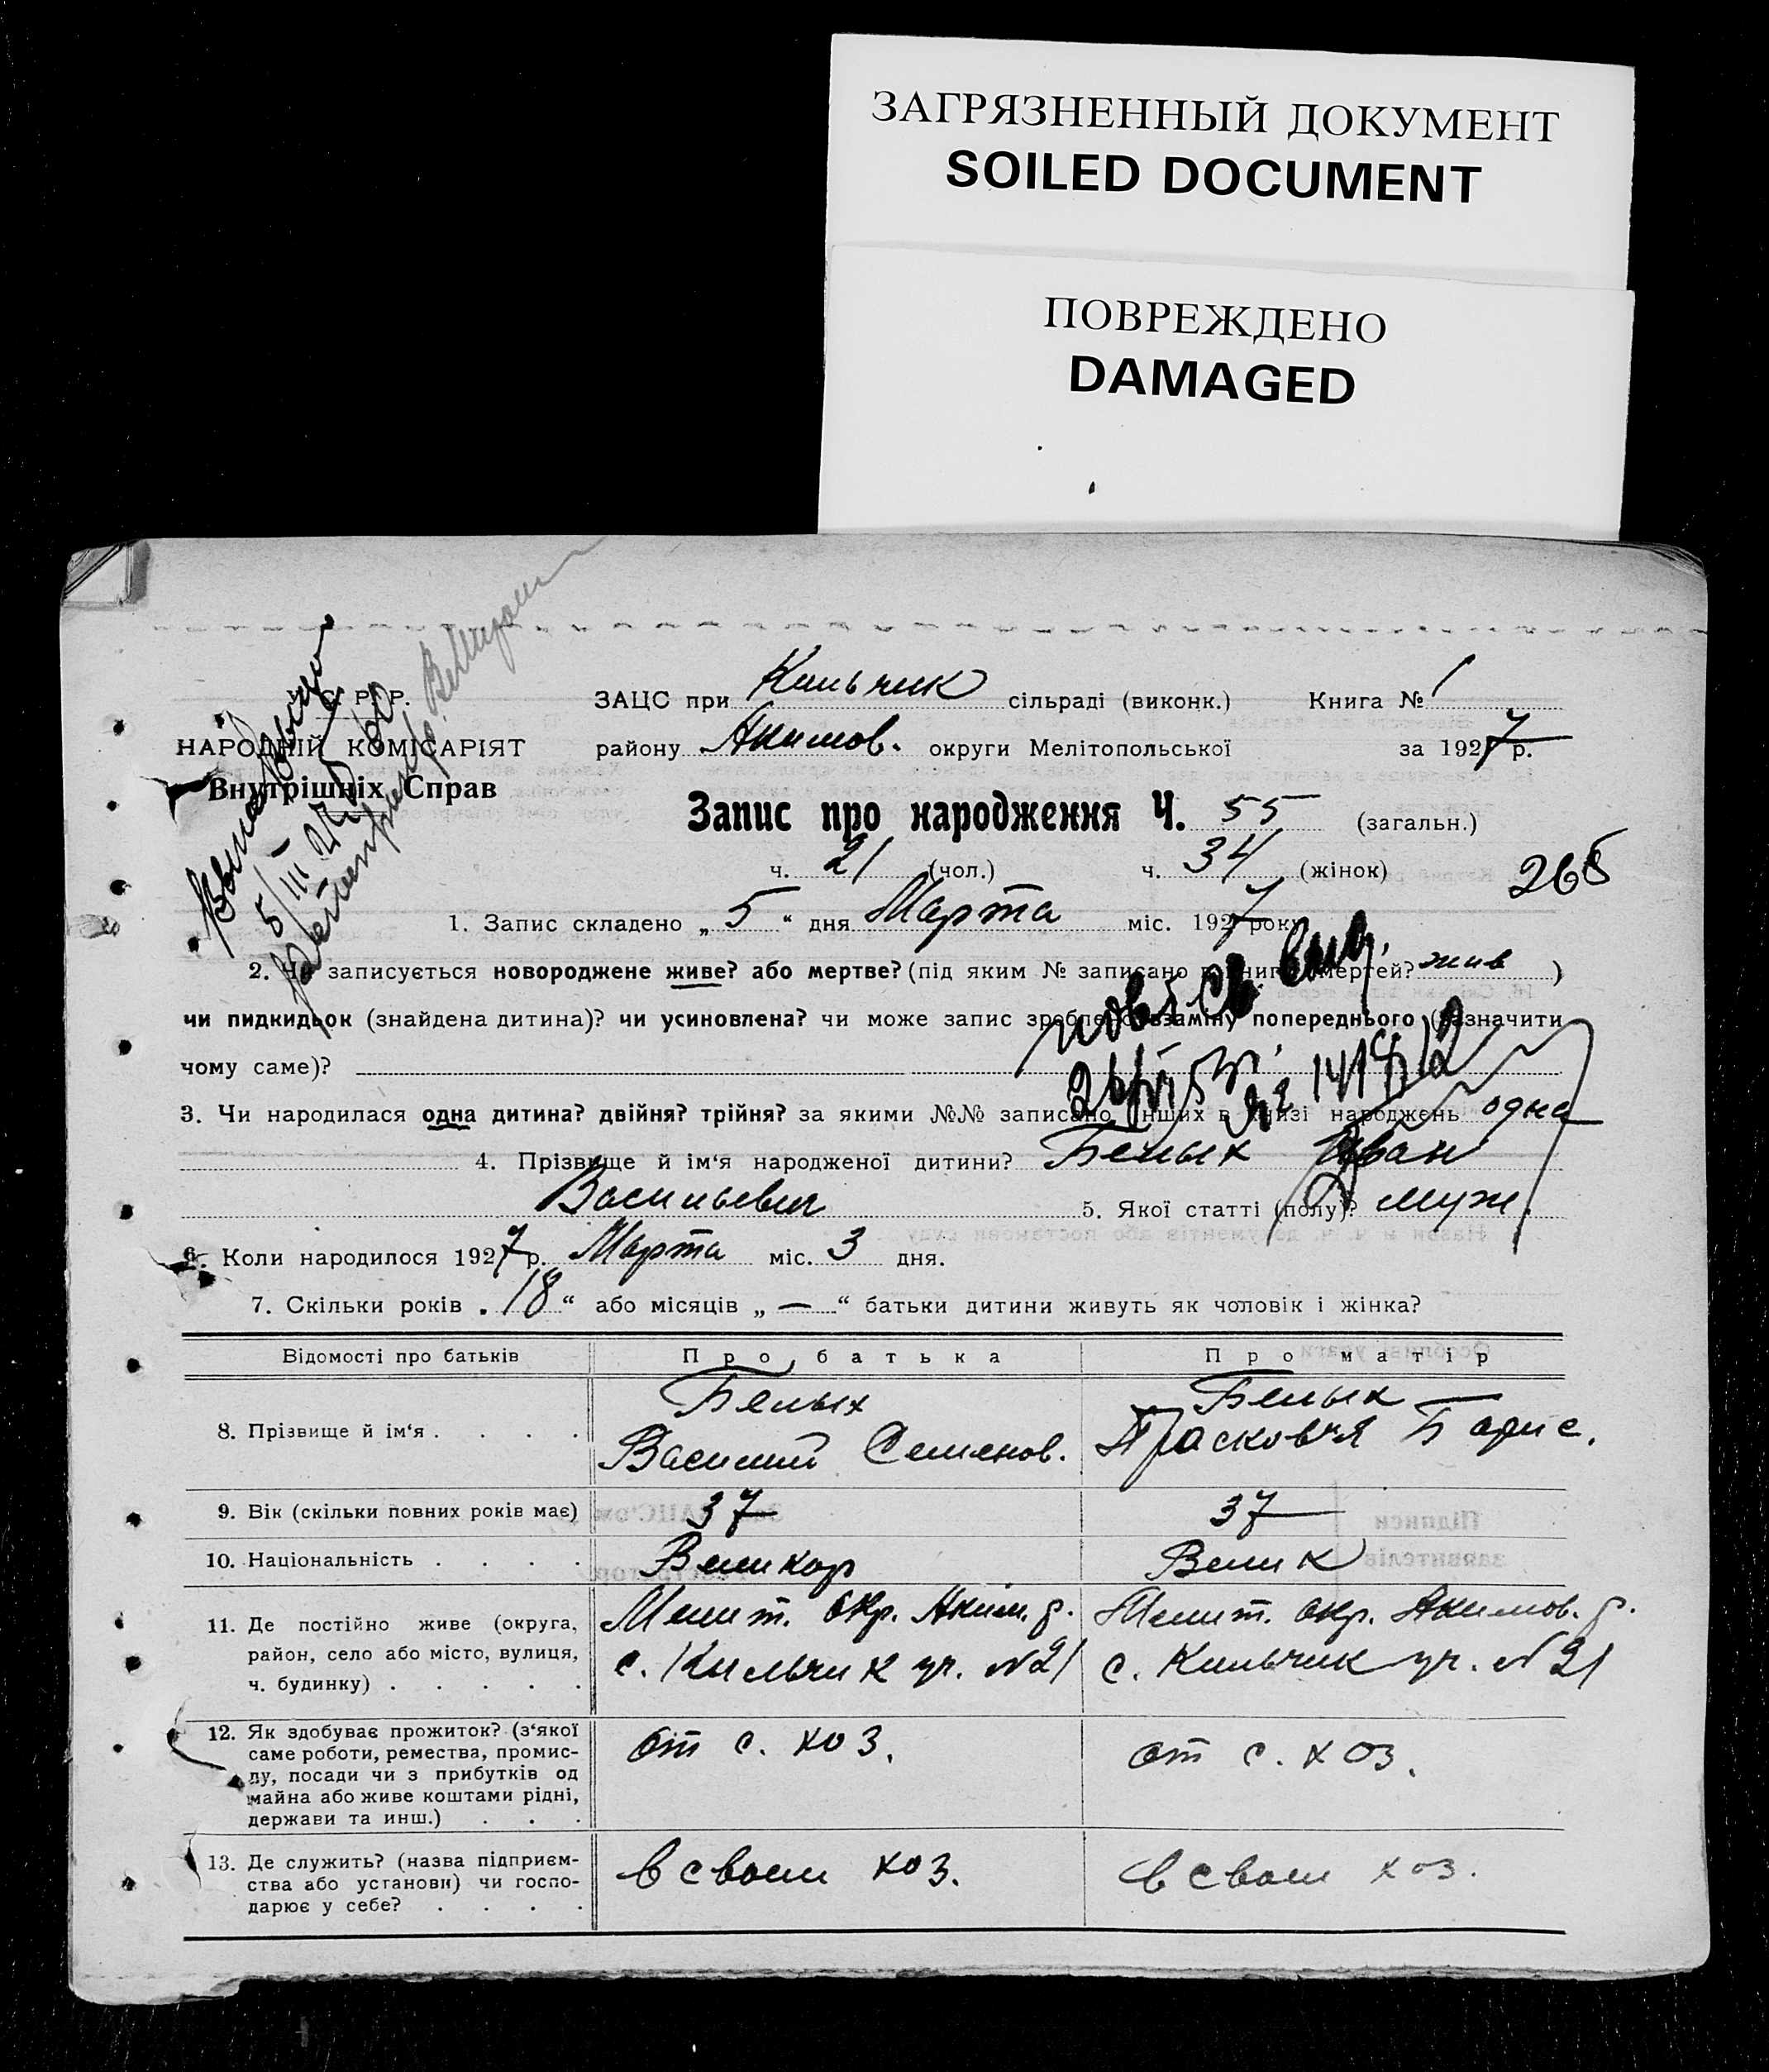 ЗАГРЯЗНЕННЫЙ ДОКУМЕНТ
SOILED DOCUMENT
ПОВРЕЖДЕНО
DAMAGED
У. С. Р. Р.
НАРОДНІЙ КОМІСАРІЯТ
Внутрішніх Справ
ЗАЦС при Кильчик сільраді (виконк.) Книга № 1
району Акимов. округи Мелітопольської за 1927 р.
Запис про народження Ч. 55 (загальн.)
ч. 21 (чол.) ч. 34 (жінок)
265
1. Запис складено „ 5 “ дня Марта міс. 1927 року
2. Чи записується новороджене живе? або мертве? (під яким № записано в книгі смертей? жив )
чи пидкидьок (знайдена дитина)? чи усиновлена? чи може запис зроблено взаміну попереднього (зазначити
чому саме)?
3. Чи народилася одна дитина? двійня? трійня? за якими №№ записано інших в книзі народжень одна
4. Прізвище й ім‘я народженої дитини? Белых Иван
Васильевич 5. Якої статті (полу)? муж.
6. Коли народилося 1927 р. Марта міс. 3 дня.
7. Скільки років „ 18 “ або місяців „ — “ батьки дитини живуть як чоловік і жінка?
Відомості про батьків Про батька Про матір
8. Прізвище й ім‘я . . . . Белых Василий Семенов. Белых Прасковья Борис.
9. Вік (скільки повних років має) 37 37
10. Національність . . . . Великор Велик
11. Де постійно живе (округа, Мелит. окр. Аким. р. Мелит. окр. Акимов. р.
район, село або місто, вулиця, с. Кильчик ул. №21 с. Кильчик ул. №21
ч. будинку) . . . . .
12. Як здобуває прожиток? (з‘якої
саме роботи, ремества, промис- от с. хоз. от с. хоз.
лу, посади чи з прибутків од
майна або живе коштами рідні,
держави та инш.) . . .
13. Де служить? (назва підприєм- в своем хоз. в своем хоз.
ства або установи) чи госпо-
дарює у себе? . . . .